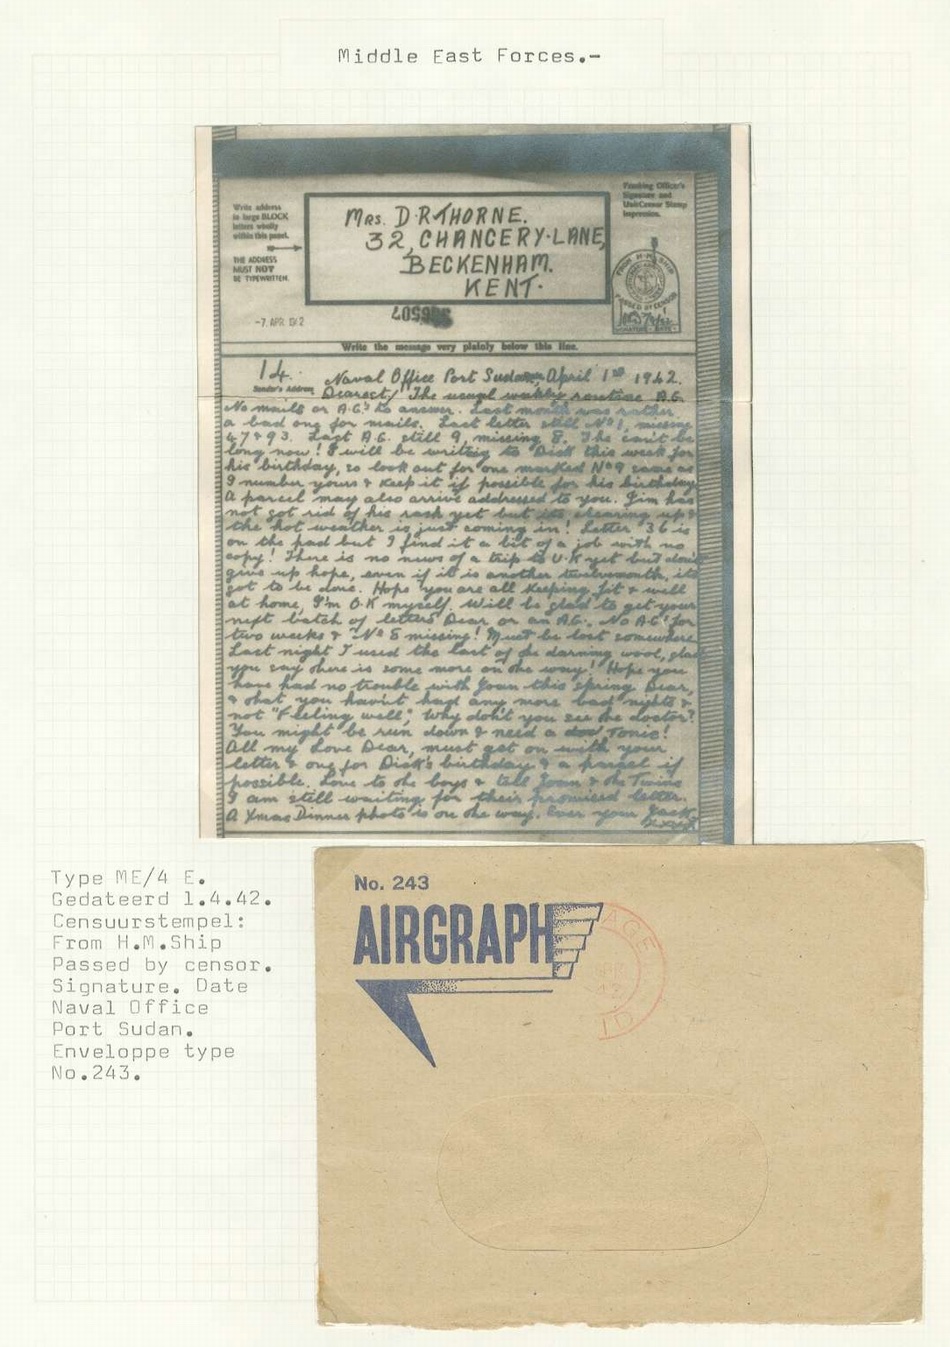 Middle East Forces.-
Write address
in large BLOCK
letters wholly
within this panel.
THE ADDRESS
MUST NOT
BE TYPEWRITTEN.
MRS. D.R.THORNE.
32, CHANCERY-LANE,
BECKENHAM.
KENT.
Franking Officer's
Signature and
Unit Censor Stamp
Impression.
FROM H.M. SHIP
PASSED BY CENSOR
SIGNATURE DATE
-7 APR 1942
Write the message very plainly below this line.
14.
Sender's Address
Naval Office Port Sudan, April 1st 1942.
Dearest/ The usual weekly routine A.G.
No mails or A.G.s to answer. Last month was rather
a bad one for mails. Last letter still No 1, missing
47 & 93. Last A.G. still 9, missing 8. The can't be
long now! I will be writing to Dick this week for
his birthday, so look out for one marked No 9 same as
I number yours & keep it if possible for his birthday
A parcel may also arrive addressed to you. Jim has
not got rid of his rash yet but its clearing up &
the hot weather is just coming in! Letter 36 is
on the pad but I find it a bit of a job with no
copy! There is no news of a trip to U.K yet but don't
give up hope, even if it is another twelvemonth, its
got to be done. Hope you are all keeping fit & well
at home, I'm O.K myself. Will be glad to get your
next batch of letters Dear or an A.G. No A.G.s for
two weeks & No 8 missing! Must be lost somewhere
Last night I used the last of the darning wool, glad
you say there is some more on the way! Hope you
have had no trouble with Joan this Spring Dear,
& that you havn't had any more bad nights &
not "Feeling well", Why don't you see the doctor?
You might be run down & need a Tonic!
All my Love Dear, must get on with your
letter & one for Dick's birthday & a parcel if
possible. Love to the boys & tell Joan & the Twins
I am still waiting for their promised letter.
A Xmas Dinner photo is on the way. Ever your Jack
Type ME/4 E.
Gedateerd 1.4.42.
Censuurstempel:
From H.M.Ship
Passed by censor.
Signature. Date
Naval Office
Port Sudan.
Enveloppe type
No.243.
No. 243
AIRGRAPH
AGE